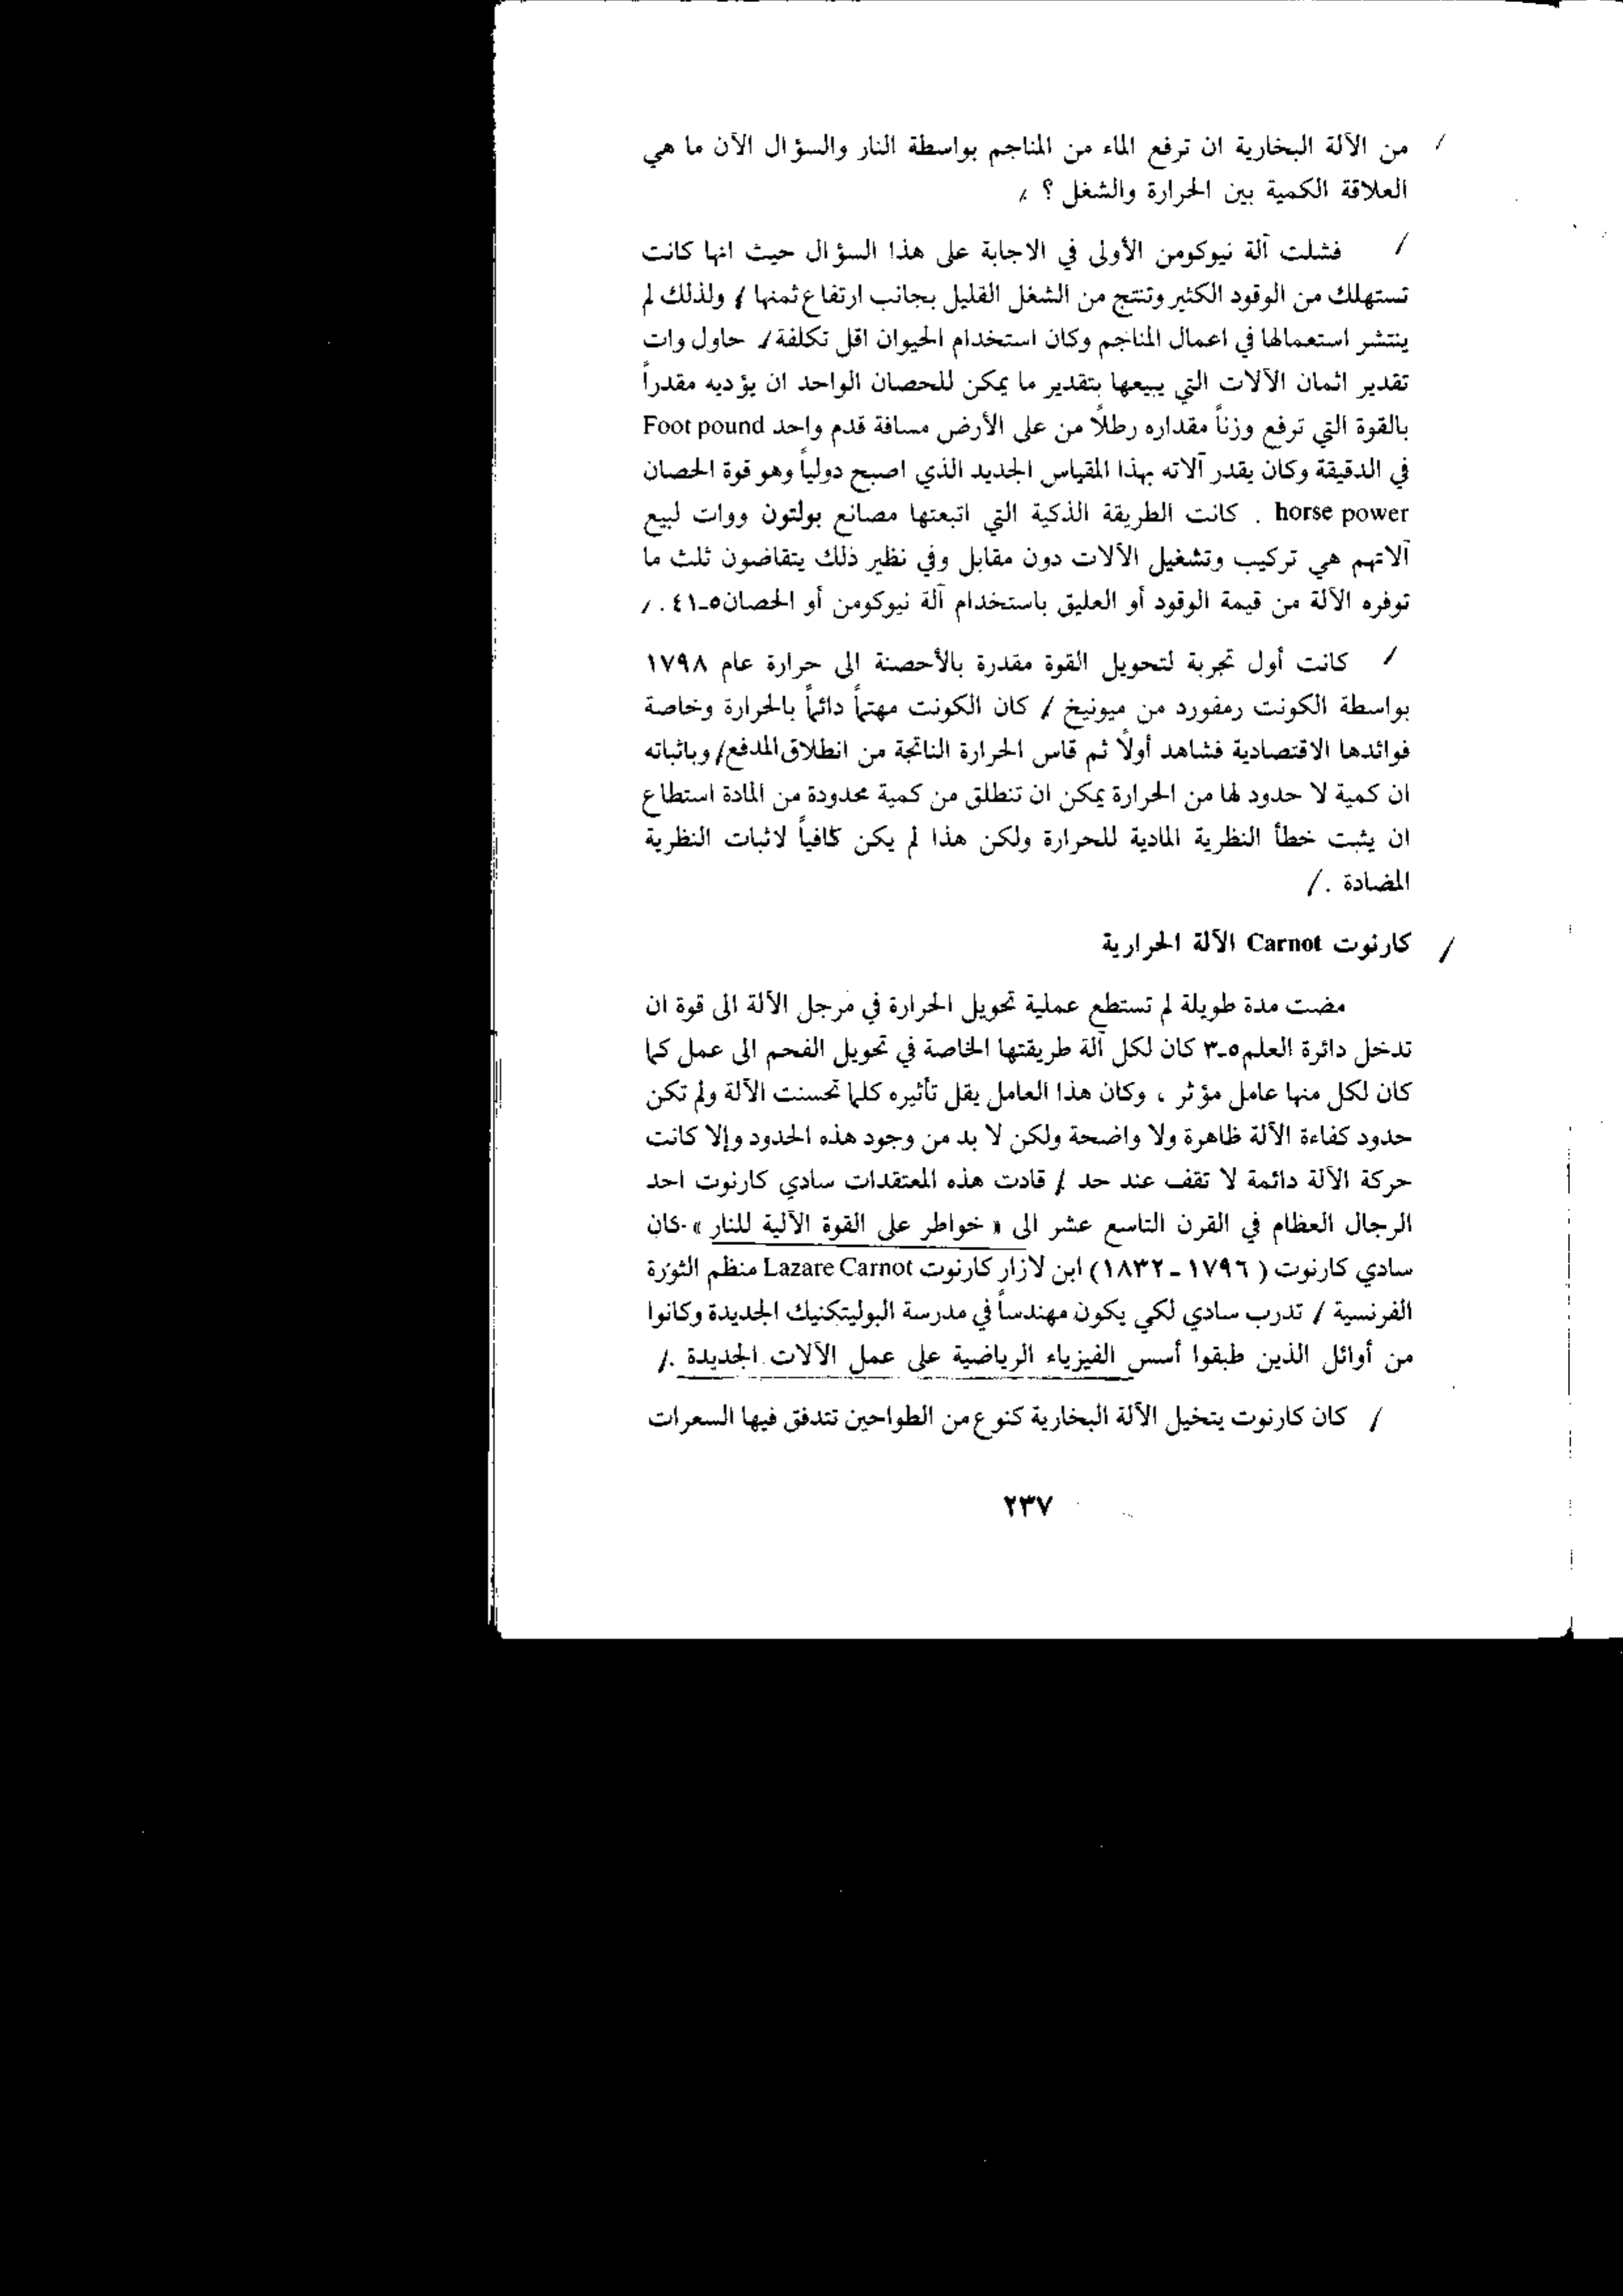 من الآلة البخارية ان ترفع الماء من المناجم بواسطة النار والسؤال الآن ما هي
العلاقة الكمية بين الحرارة والشغل ؟
فشلت آلة نيوكومن الأولى في الاجابة على هذا السؤال حيث انها كانت
تستهلك من الوقود الكثير وتنتج من الشغل القليل بجانب ارتفاع ثمنها / ولذلك لم
ينتشر استعمالها في اعمال المناجم وكان استخدام الحيوان اقل تكلفة /. حاول وات
تقدير اثمان الآلات التي يبيعها بتقدير ما يمكن للحصان الواحد ان يؤديه مقدراً
بالقوة التي ترفع وزناً مقداره رطلاً من على الأرض مسافة قدم واحد Foot pound
في الدقيقة وكان يقدر آلاته بهذا المقياس الجديد الذي اصبح دولياً وهو قوة الحصان
horse power . كانت الطريقة الذكية التي اتبعتها مصانع بولتون ووات لبيع
آلاتهم هي تركيب وتشغيل الآلات دون مقابل وفي نظير ذلك يتقاضون ثلث ما
توفره الآلة من قيمة الوقود أو العليق باستخدام آلة نيوكومن أو الحصان٥-٤١ . /
/ كانت أول تجربة لتحويل القوة مقدرة بالأحصنة الى حرارة عام ١٧٩٨
بواسطة الكونت رمفورد من ميونيخ / كان الكونت مهتماً دائماً بالحرارة وخاصة
فوائدها الاقتصادية فشاهد أولاً ثم قاس الحرارة الناتجة من انطلاق المدفع / وباثباته
ان كمية لا حدود لها من الحرارة يمكن ان تنطلق من كمية محدودة من المادة استطاع
ان يثبت خطأ النظرية المادية للحرارة ولكن هذا لم يكن كافياً لاثبات النظرية
المضادة . /
/ كارنوت Carnot الآلة الحرارية
مضت مدة طويلة لم تستطع عملية تحويل الحرارة في مرجل الآلة الى قوة ان
تدخل دائرة العلم٥-٣ كان لكل آلة طريقتها الخاصة في تحويل الفحم الى عمل كما
كان لكل منها عامل مؤثر ، وكان هذا العامل يقل تأثيره كلما تحسنت الآلة ولم تكن
حدود كفاءة الآلة ظاهرة ولا واضحة ولكن لا بد من وجود هذه الحدود وإلا كانت
حركة الآلة دائمة لا تقف عند حد / قادت هذه المعتقدات سادي كارنوت احد
الرجال العظام في القرن التاسع عشر الى « خواطر على القوة الآلية للنار » كان
سادي كارنوت ( ١٧٩٦ - ١٨٣٢) ابن لازار كارنوت Lazare Carnot منظم الثورة
الفرنسية / تدرب سادي لكي يكون مهندساً في مدرسة البوليتكنيك الجديدة وكانوا
من أوائل الذين طبقوا أسس الفيزياء الرياضية على عمل الآلات الجديدة . /
/ كان كارنوت يتخيل الآلة البخارية كنوع من الطواحين تتدفق فيها السعرات
٢٣٧